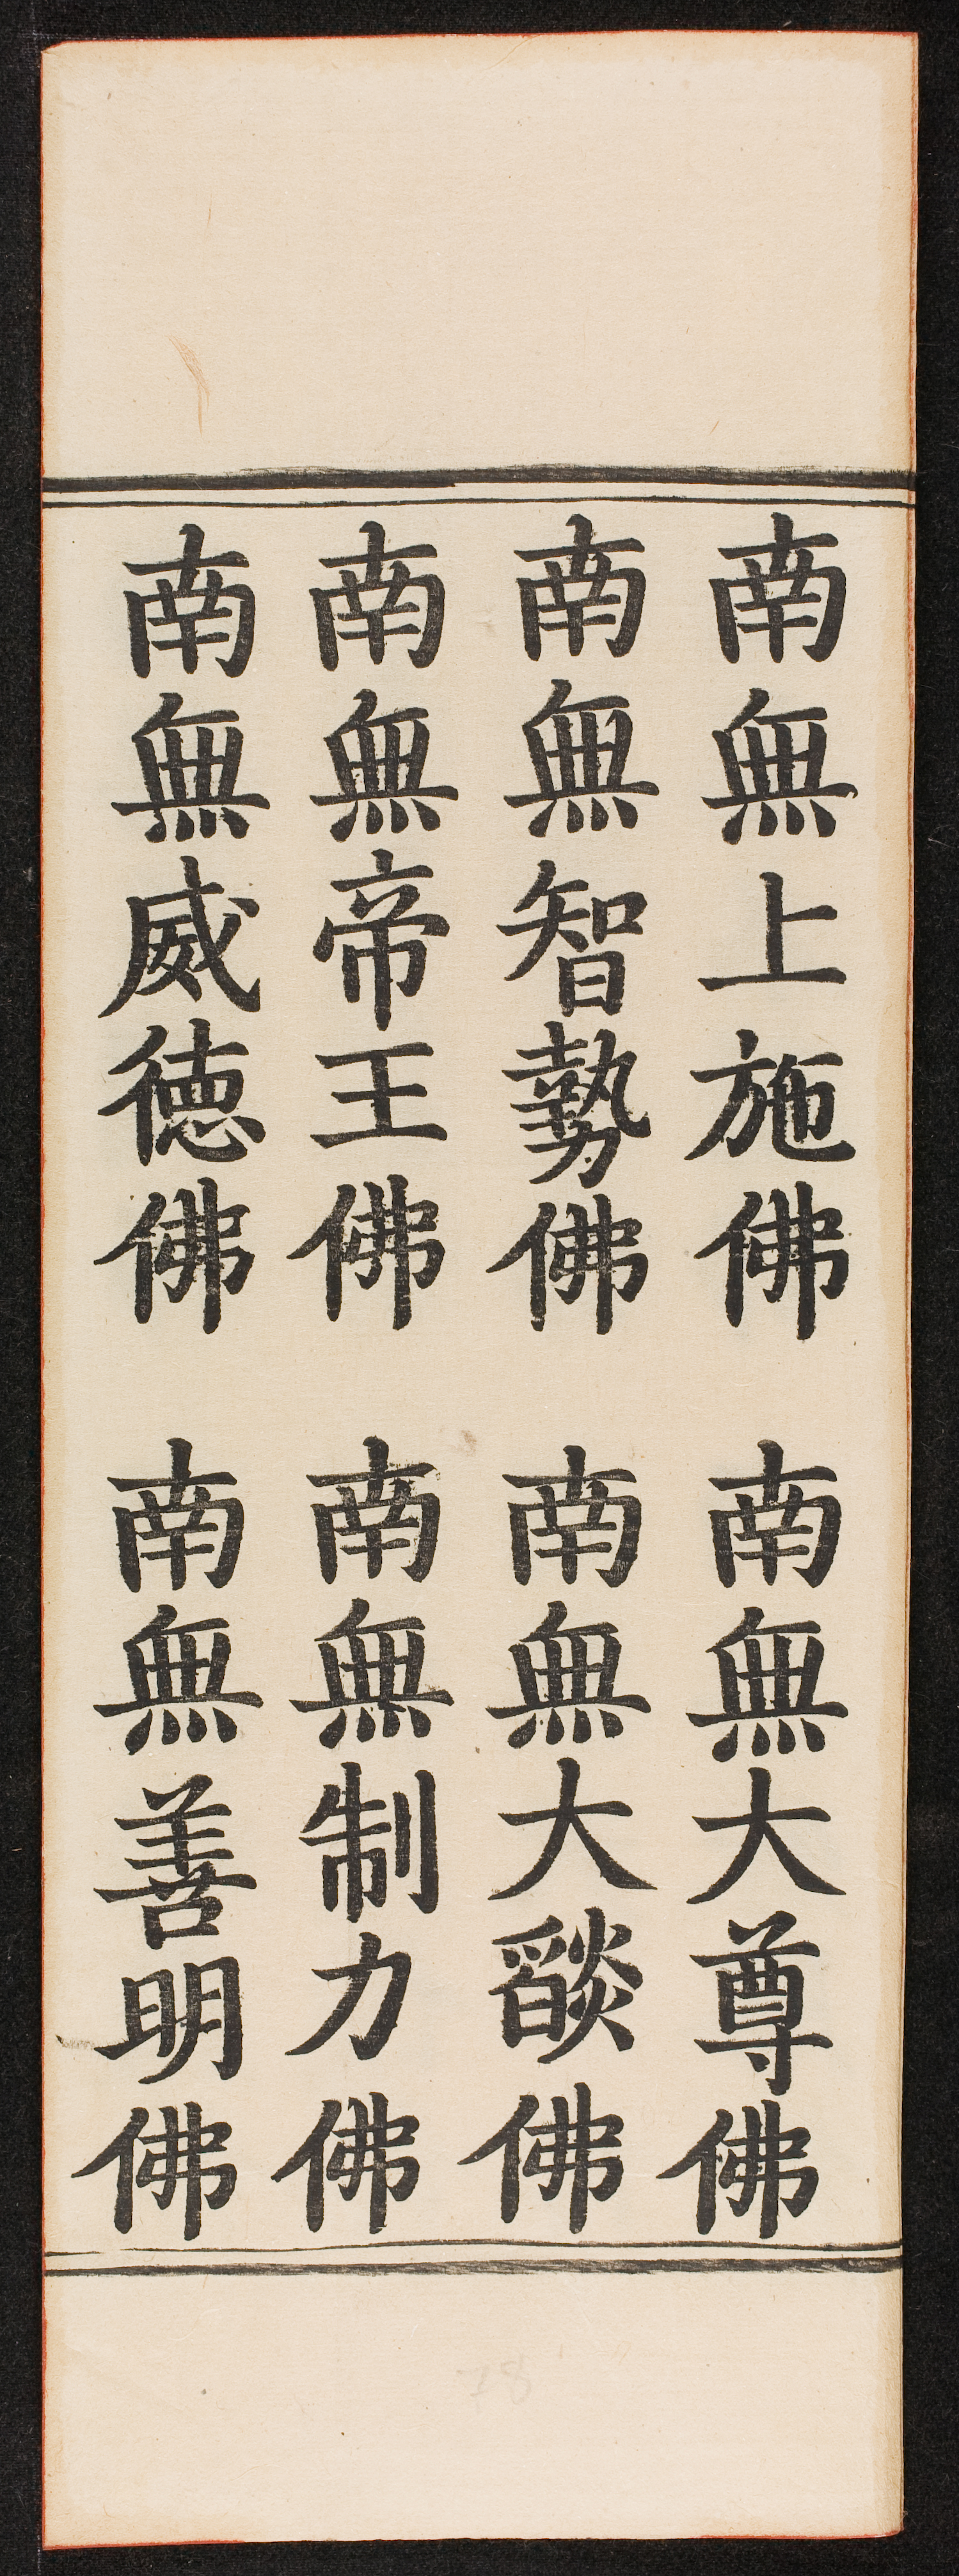 南無上施佛 南無大尊佛
南無智勢佛 南無大燄佛
南無帝王佛 南無制力佛
南無威德佛 南無善明佛
78